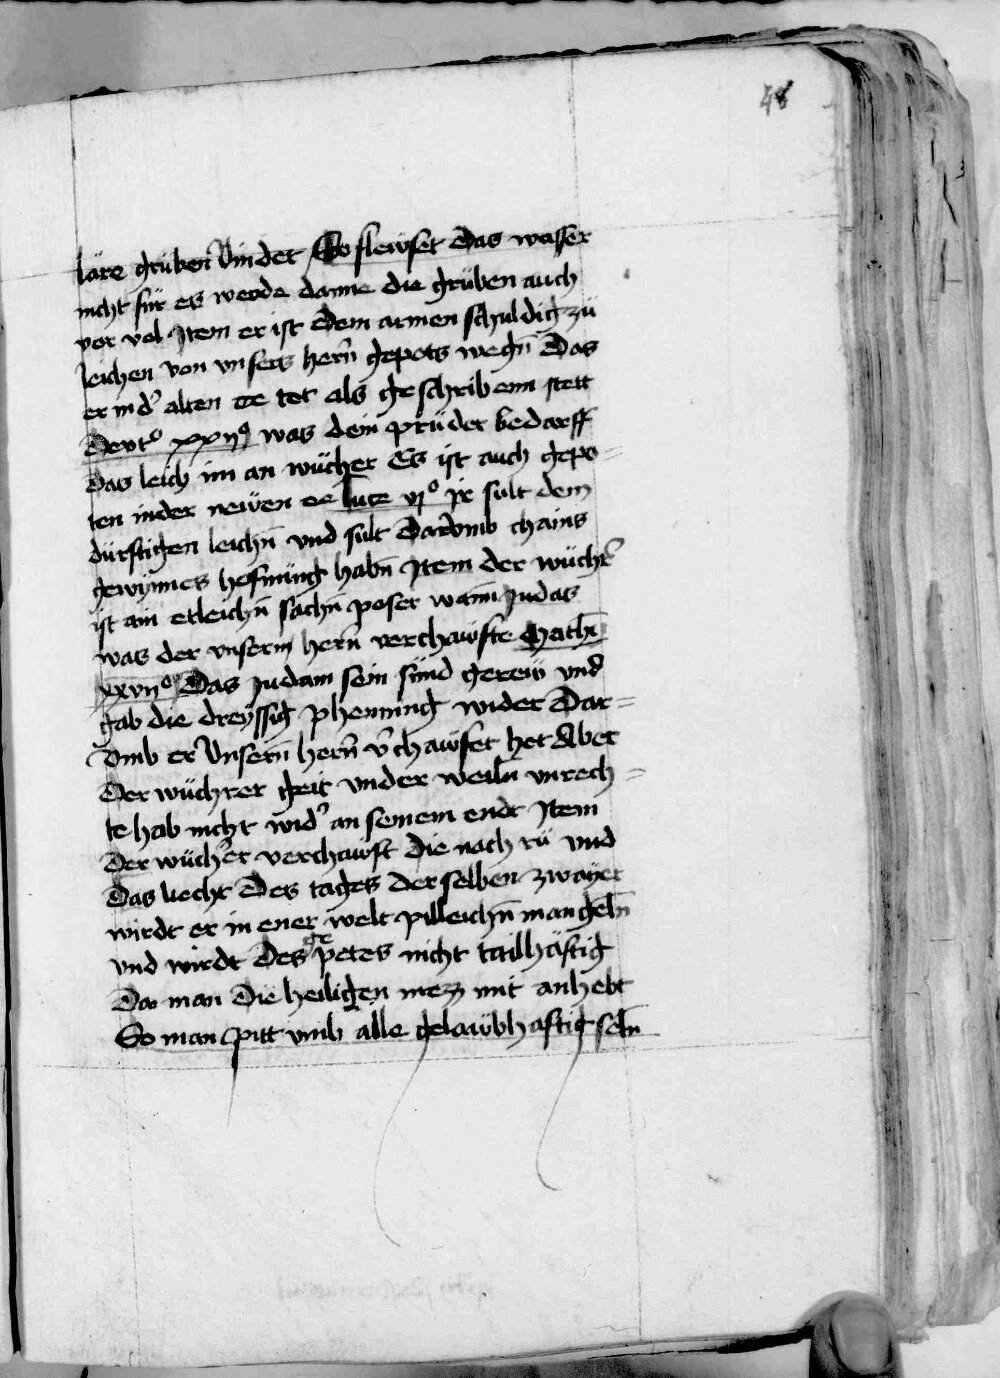 48
läre grüben vindet So flewset das wasser
nicht für es werde danne die grüben auch
vor vol Item er ist dem armen schuldig zü
leichen von unsers herñ gepots wegñ Das
er in d' alten ee tet als geschriben stett
Devt° xxii° was dein prüder bedarff
das leich im an wücher Es ist auch gepo=
ten in der newen ee luce vi° ir sult dem
dürftigen leichñ vnd sült darvmb chains
gewynnes hofnüng habñ Item der wüchr'
ist ain etleichñ sachñ poser wann judas
was der vnserm herñ verchawfte Mathi
xxvii° Das judam sein sünd gerew vnd
gab die dreyssig phenning wider Dar=
vmb er vnserñ herñ v'chawfet het Aber
Der wüchrer geit vnder weilñ vnrech=
te hab nicht wid' an seinem ende Item
Der wücher verchawft die nach rü vnd
das liecht des tages der selben zwayer
wirdt er in ener welt pilleichñ mangelñ
vnd wirdt des gepetes nicht tailhäftig
Da man die heiligen mezz mit anhebt
So man pitt vmb alle gelawbhaftig selñ